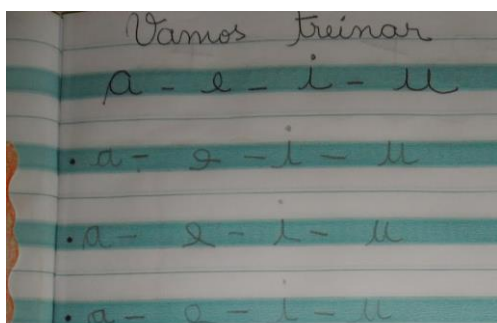 Vamos treinar
a - e - i - u
. a - e - i - u
. a - e - i - u
. a - e - i - u